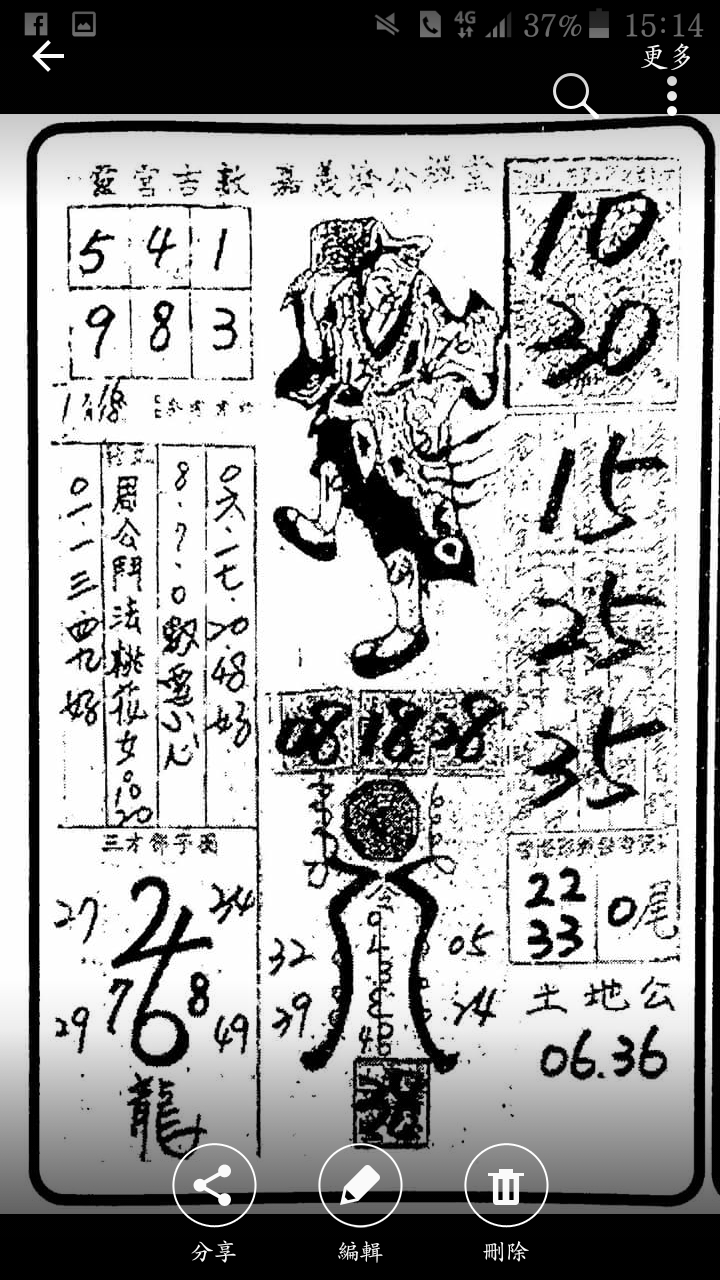 4G 37% 15:14
更多
靈宮吉數 嘉義濟公禪堂
5 4 1
9 8 3
10
30
15
25
35
0六.一七.20.48好
8.7.0數要小心
周公鬥法桃花女
10
20
0一.一三.四九好
08 18 38
三才
27 24 34
7 6 8
29 49
龍
32 05
39 24
22
33
0尾
土地公
06.36
分享 編輯 刪除